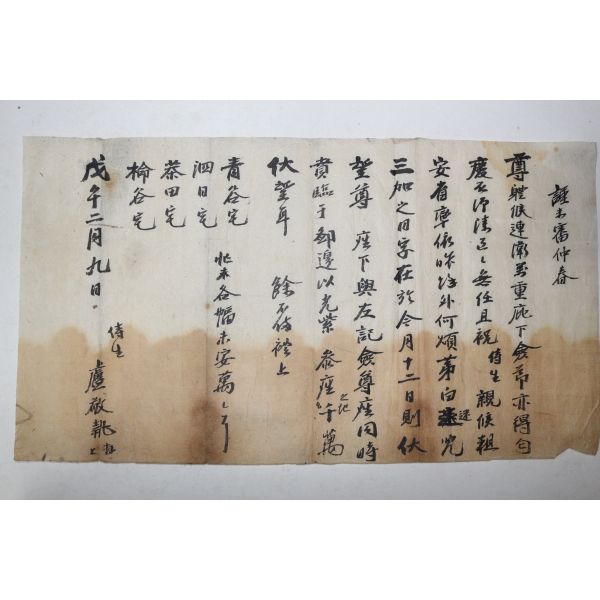 謹未審仲春
尊體候連衛萬重庇下僉節亦得勻
慶否仰溸區區無任且祝侍生親候粗
安省率依昨外何煩第白迷兒
三加之日字在於今月十二日則伏
望尊座下與左記僉尊座同時
賁臨于鄙邊以光 參座千萬
伏望耳 餘不備禮上
青谷宅
泗日宅
茶田宅
棆谷宅
各幅未安萬萬耳
戊午二月九日
侍生 盧敬 拜上